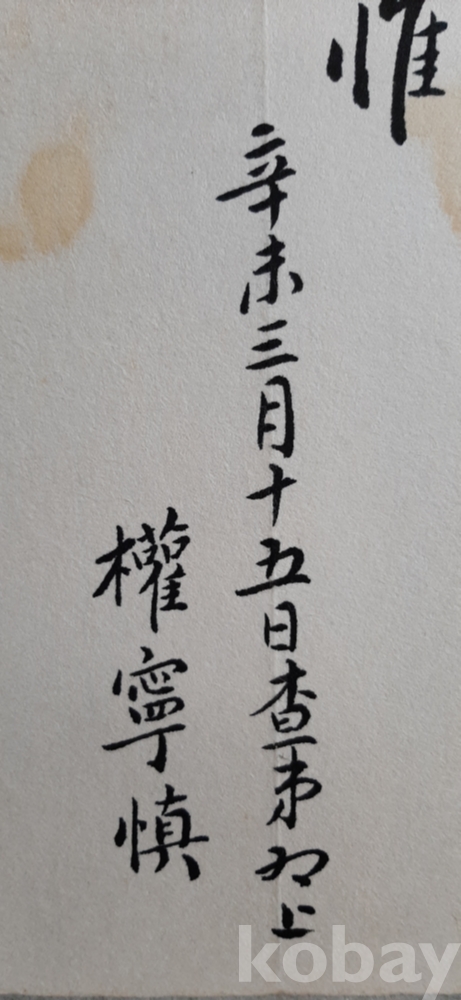 惟
辛未三月十五日査弟上
權寧慎
kobay